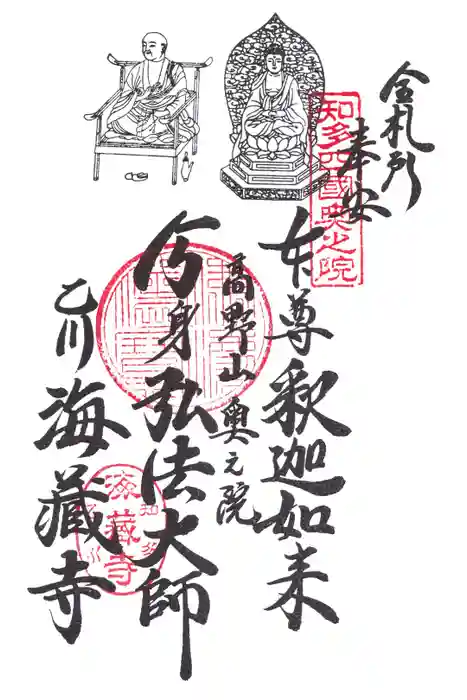 合札所
奉安
知多四國奥之院
本尊釈迦如来
高野山奥之院
分身弘法大師
乙川
海藏寺
海藏寺
知多
乙川